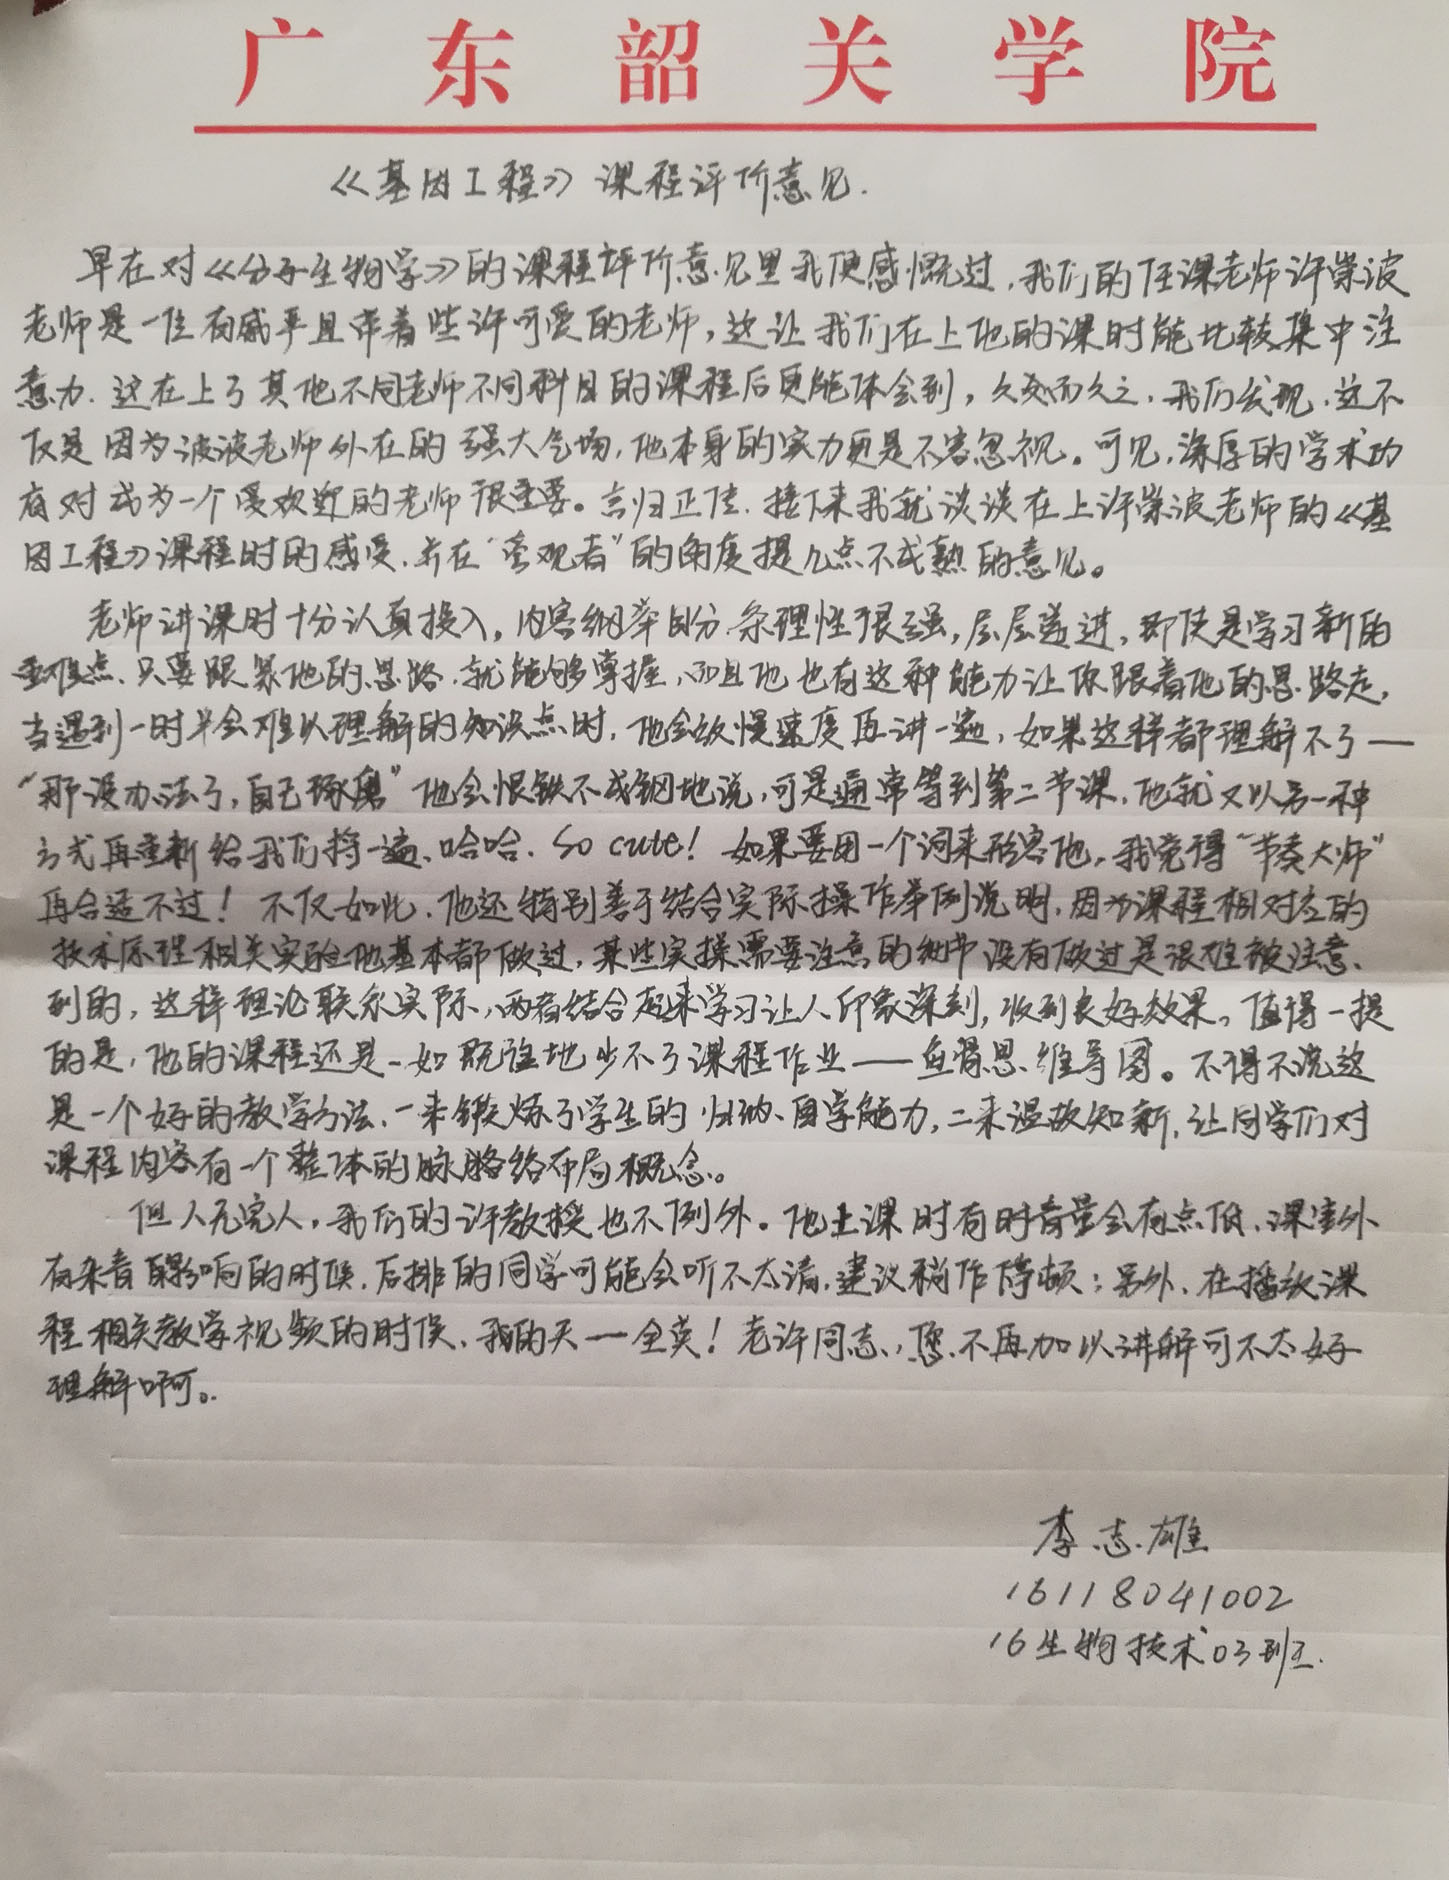 广东韶关学院
《基因工程》课程评价意见.
早在对《分子生物学》的课程评价意见里我便感慨过,我们的任课老师许崇波
老师是一位有威严且带着些许可爱的老师,这让我们在上他的课时能比较集中注
意力.这在上了其他不同老师不同科目的课程后更能体会到,久而久之,我们发现,这不
仅是因为波波老师外在的强大气场,他本身的实力更是不容忽视。可见,深厚的学术功
底对成为一个受欢迎的老师很重要。言归正传.接下来我就谈谈在上许崇波老师的《基
因工程》课程时的感受,并在“客观者”的角度提几点不成熟的意见。
老师讲课时十分认真投入,内容纲举目分.条理性很强,层层递进,即使是学习新的
重难点、只要跟紧他的思路,就能够掌握,而且他也有这种能力让你跟着他的思路走,
当遇到一时半会难以理解的知识点时,他会放慢速度再讲一遍,如果这样都理解不了——
“那没办法了,自己琢磨”他会恨铁不成钢地说,可是通常等到第二节课,他就又以另一种
方式再重新给我们捋一遍、哈哈.So cute!如果要用一个词来形容他,我觉得“节奏大师”
再合适不过!不仅如此.他还特别善于结合实际操作举例说明,因为课程相对应的
技术原理相关实验他基本都做过,某些实操需要注意的细节没有做过是很难被注意
到的,这样理论联系实际,两者结合起来学习让人印象深刻,收到良好效果。值得一提
的是,他的课程还是一如既往地少不了课程作业——鱼骨思维导图。不得不说这
是一个好的教学方法,一来锻炼了学生的归纳、自学能力,二来温故知新,让同学们对
课程内容有一个整体的脉胳络布局概念。
但人无完人,我们的许教授也不例外。他上课时有时音量会有点低,课室外
有杂音影响的时候,后排的同学可能会听不太清,建议稍作停顿;另外,在播放课
程相关教学视频的时候,我的天——全英!老许同志,您不再加以讲解可不太好
理解啊。
李志雄
16118041002
16生物技术03班.